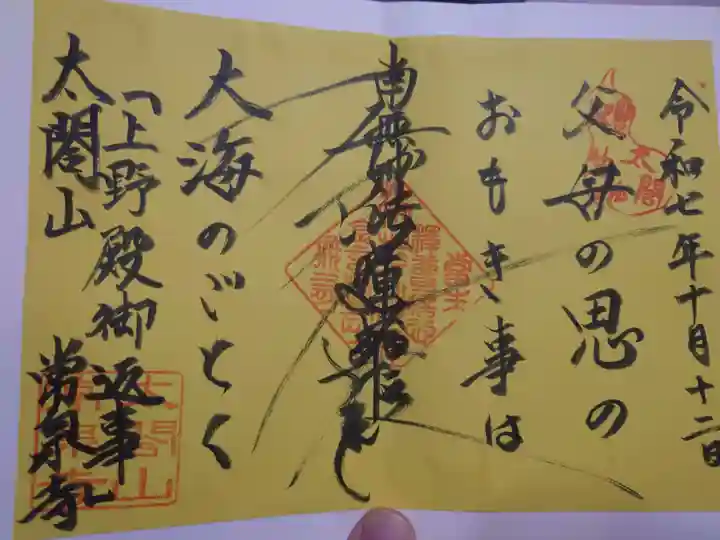 令和七年十月十二日
父母の恩の
おもき事は
南無妙法蓮華経
大海のごとく
「上野殿御返事
太閤山
常泉寺
太閤
太閤山